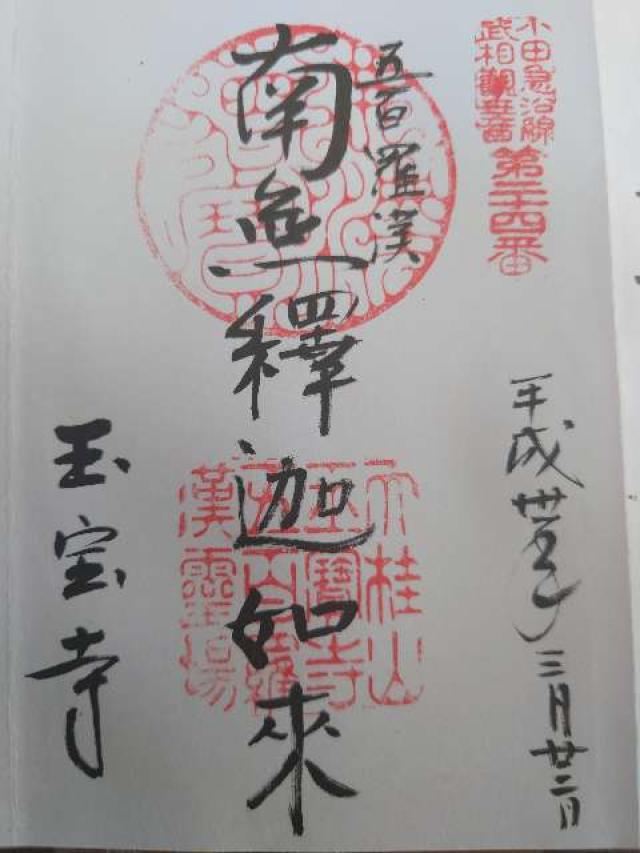 小田急沿線
武相觀音
第二十四番
平成丗一年三月廿二日
五百羅漢
南無釋迦如來
天桂山
玉寶寺
五百羅
漢靈場
玉宝寺